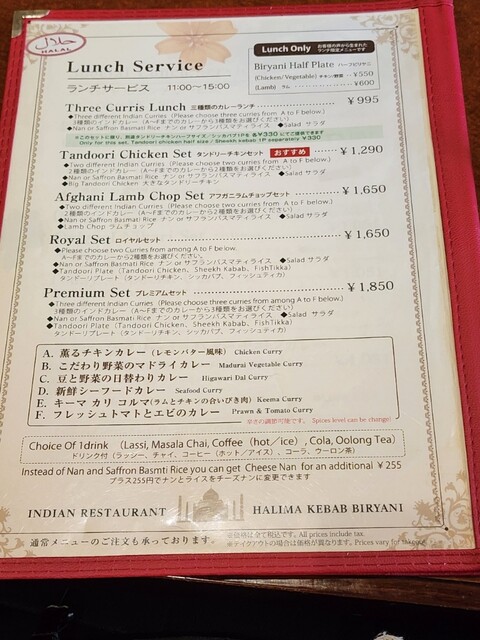 حلال
HALAL
Lunch Service
ランチサービス 11:00~15:00
Lunch Only お客様の声から生まれた ランチ限定メニューです
Biryani Half Plate ハーフビリヤニ
(Chicken/Vegetable) チキン/野菜 ¥550
(Lamb) ラム ¥600
Three Curris Lunch 三種類のカレーランチ ¥995
◆Three different Indian Curries (Please choose three curries from A to F below.)
3種類のインドカレー (A~Fまでのカレーから3種類をお選びください)
◆Nan or Saffron Basmati Rice ナン or サフランバスマティライス ◆Salad サラダ
Only for this set, Tandoori chicken half size / Sheekh kebab 1P separately ¥330
Tandoori Chicken Set タンドリーチキンセット おすすめ ¥1,290
◆Two different Indian Curries (Please choose two curries from A to F below.)
2種類のインドカレー (A~Fまでのカレーから2種類をお選びください)
◆Nan or Saffron Basmati Rice ナン or サフランバスマティライス ◆Salad サラダ
◆Big Tandoori Chicken 大きなタンドリーチキン
Afghani Lamb Chop Set アフガニラムチョップセット ¥1,650
◆Two different Indian Curries (Please choose two curries from A to F below.)
2種類のインドカレー (A~Fまでのカレーから2種類をお選びください)
◆Nan or Saffron Basmati Rice ナン or サフランバスマティライス ◆Salad サラダ
◆Lamb Chop ラムチョップ
Royal Set ロイヤルセット ¥1,650
◆Please choose two Curries from among A to F below.
A~Fまでのカレーから2種類をお選びください。
◆Nan or Saffron Basmati Rice ナン or サフランバスマティライス ◆Salad サラダ
◆Tandoori Plate (Tandoori Chicken, Sheekh Kabab, FishTikka)
タンドーリプレート (タンドーリチキン、シッカバブ、フィッシュティカ)
Premium Set プレミアムセット ¥1,850
◆Three different Indian Curries (Please choose three curries from among A to F below.)
3種類のインドカレー (A~Fまでのカレーから3種類をお選びください)
◆Nan or Saffron Basmati Rice ナン or サフランバスマティライス ◆Salad サラダ
◆Tandoori Plate (Tandoori Chicken, Sheekh Kabab, FishTikka)
タンドーリプレート (タンドーリチキン、シッカバブ、フィッシュティカ)
A. 薫るチキンカレー (レモンバター風味) Chicken Curry
B. こだわり野菜のマドライカレー Madurai Vegetable Curry
C. 豆と野菜の日替わりカレー Higawari Dal Curry
D. 新鮮シーフードカレー Seafood Curry
E. キーマ カリ コルマ(ラムとチキンの合いびき肉) Keema Curry
F. フレッシュトマトとエビのカレー Prawn & Tomato Curry
辛さの調節可能です。 Spices level can be change)
Choice Of 1drink (Lassi, Masala Chai, Coffee (hot/ice) , Cola, Oolong Tea)
ドリンク付 (ラッシー、チャイ、コーヒー(ホット/アイス)、コーラ、ウーロン茶)
Instead of Nan and Saffron Basmti Rice you can get Cheese Nan for an additional ¥255
プラス255円でナンとライスをチーズナンに変更できます
INDIAN RESTAURANT HALIMA KEBAB BIRYANI
通常メニューのご注文も承っております。
※価格は全て税込です。All prices include tax.
※テイクアウトの場合は価格が異なります。Prices vary for takeout.